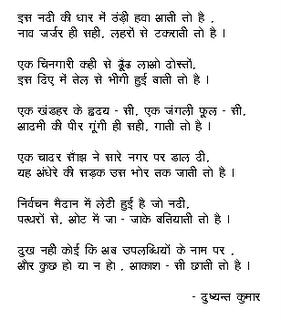 इस नदी की धार में ठंडी हवा आती तो है ,
नाव जर्जर ही सही, लहरों से टकराती तो है ।
एक चिनगारी कही से ढूँढ लाओ दोस्तों,
इस दिए में तेल से भीगी हुई बाती तो है ।
एक खंडहर के हृदय - सी, एक जंगली फूल - सी,
आदमी की पीर गूंगी ही सही, गाती तो है ।
एक चादर साँझ ने सारे नगर पर डाल दी,
यह अंधेरे की सड़क उस भोर तक जाती तो है ।
निर्वचन मैदान में लेटी हुई है जो नदी,
पत्थरों से, ओट में जा - जाके बतियाती तो है ।
दुख नहीं कोई कि अब उपलब्धियों के नाम पर ,
और कुछ हो या न हो, आकाश - सी छाती तो है ।
- दुष्यन्त कुमार